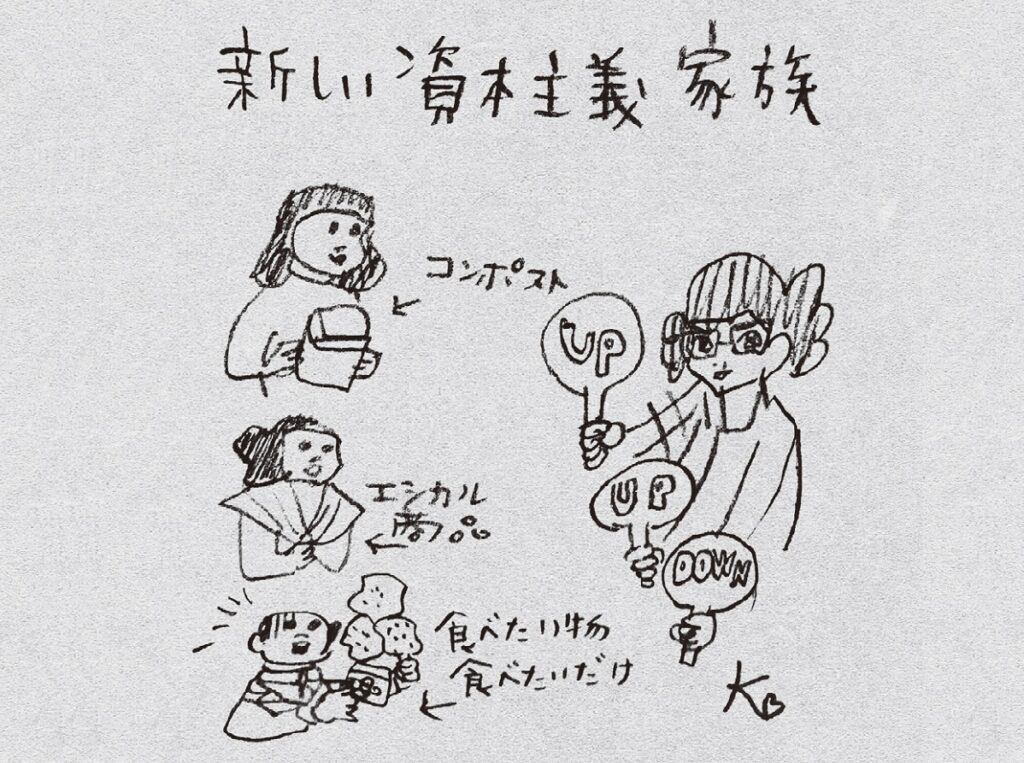 新しい資本主義家族
コンポスト
UP
エシカル
商品
UP
DOWN
食べたい物
食べたいだけ
KB